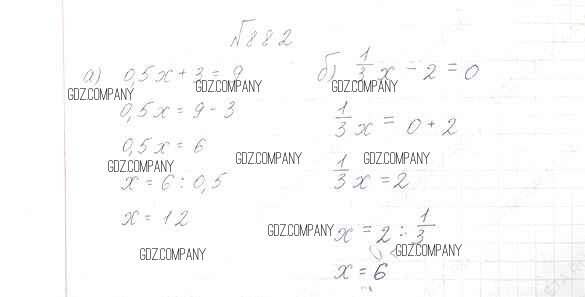 №882
а) 0,5x + 3 = 9
0,5x = 9 - 3
0,5x = 6
x = 6 : 0,5
x = 12
б) 1/3 x - 2 = 0
1/3 x = 0 + 2
1/3 x = 2
x = 2 : 1/3
x = 6
GDZ.COMPANY
GDZ.COMPANY
GDZ.COMPANY
GDZ.COMPANY
GDZ.COMPANY
GDZ.COMPANY
GDZ.COMPANY
GDZ.COMPANY
GDZ.COMPANY